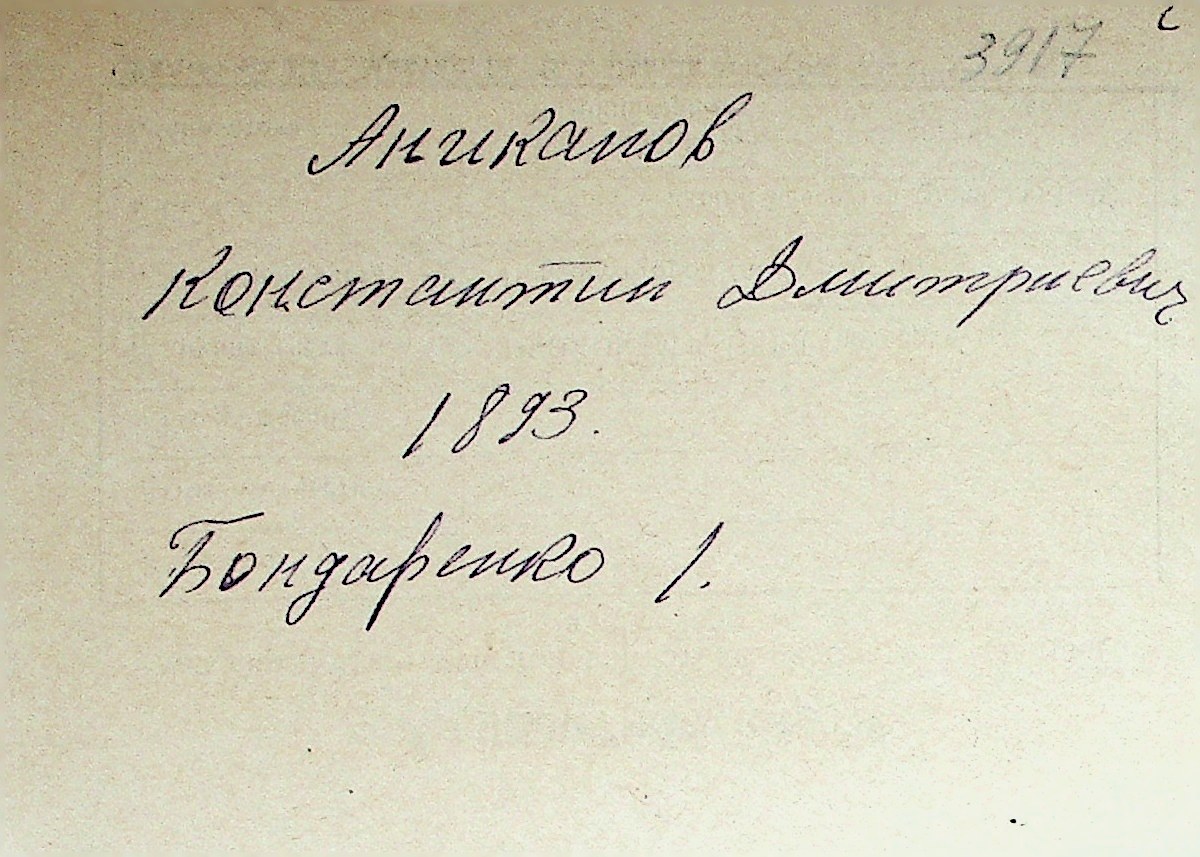 3917
Аниканов
Константин Дмитриевич
1893.
Бондаренко 1.